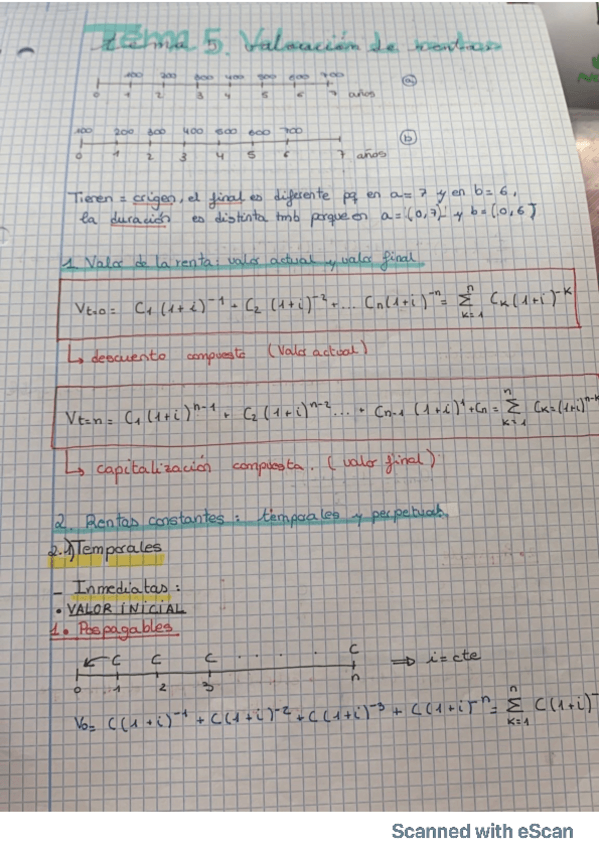 Tema 5. Valoración de rentas
100 200 300 400 500 600 700
0 1 2 3 4 5 6 7 años (a)
100 200 300 400 500 600 700
0 1 2 3 4 5 6 7 años (b)
Tienen = origen, el final es diferente pq en a=7 y en b=6,
la duración es distinta tmb porque en a=(0,7] y b=[0,6]
1. Valor de la renta: valor actual y valor final
Vt=0= C1 (1+i)^-1 + C2 (1+i)^-2 + ... Cn(1+i)^-n = Σ n k=1 Ck(1+i)^-k
↳ descuento compuesto (Valor actual)
Vt=n= C1 (1+i)^n-1 + C2 (1+i)^n-2 ... + Cn-1 (1+i)^1 + Cn = Σ n k=1 Ck=(1+i)^n-k
↳ capitalización compuesta. (valor final)
2. Rentas constantes: temporales y perpetuas,
2.1) Temporales
- Inmediatas:
• VALOR INICIAL
1. Pospagables
C C C . . . . C
0 1 2 3 n ⇒ i=cte
V0= C(1+i)^-1 + C(1+i)^-2 + C(1+i)^-3 + C(1+i)^-n = Σ n k=1 C(1+i)^-
Scanned with eScan